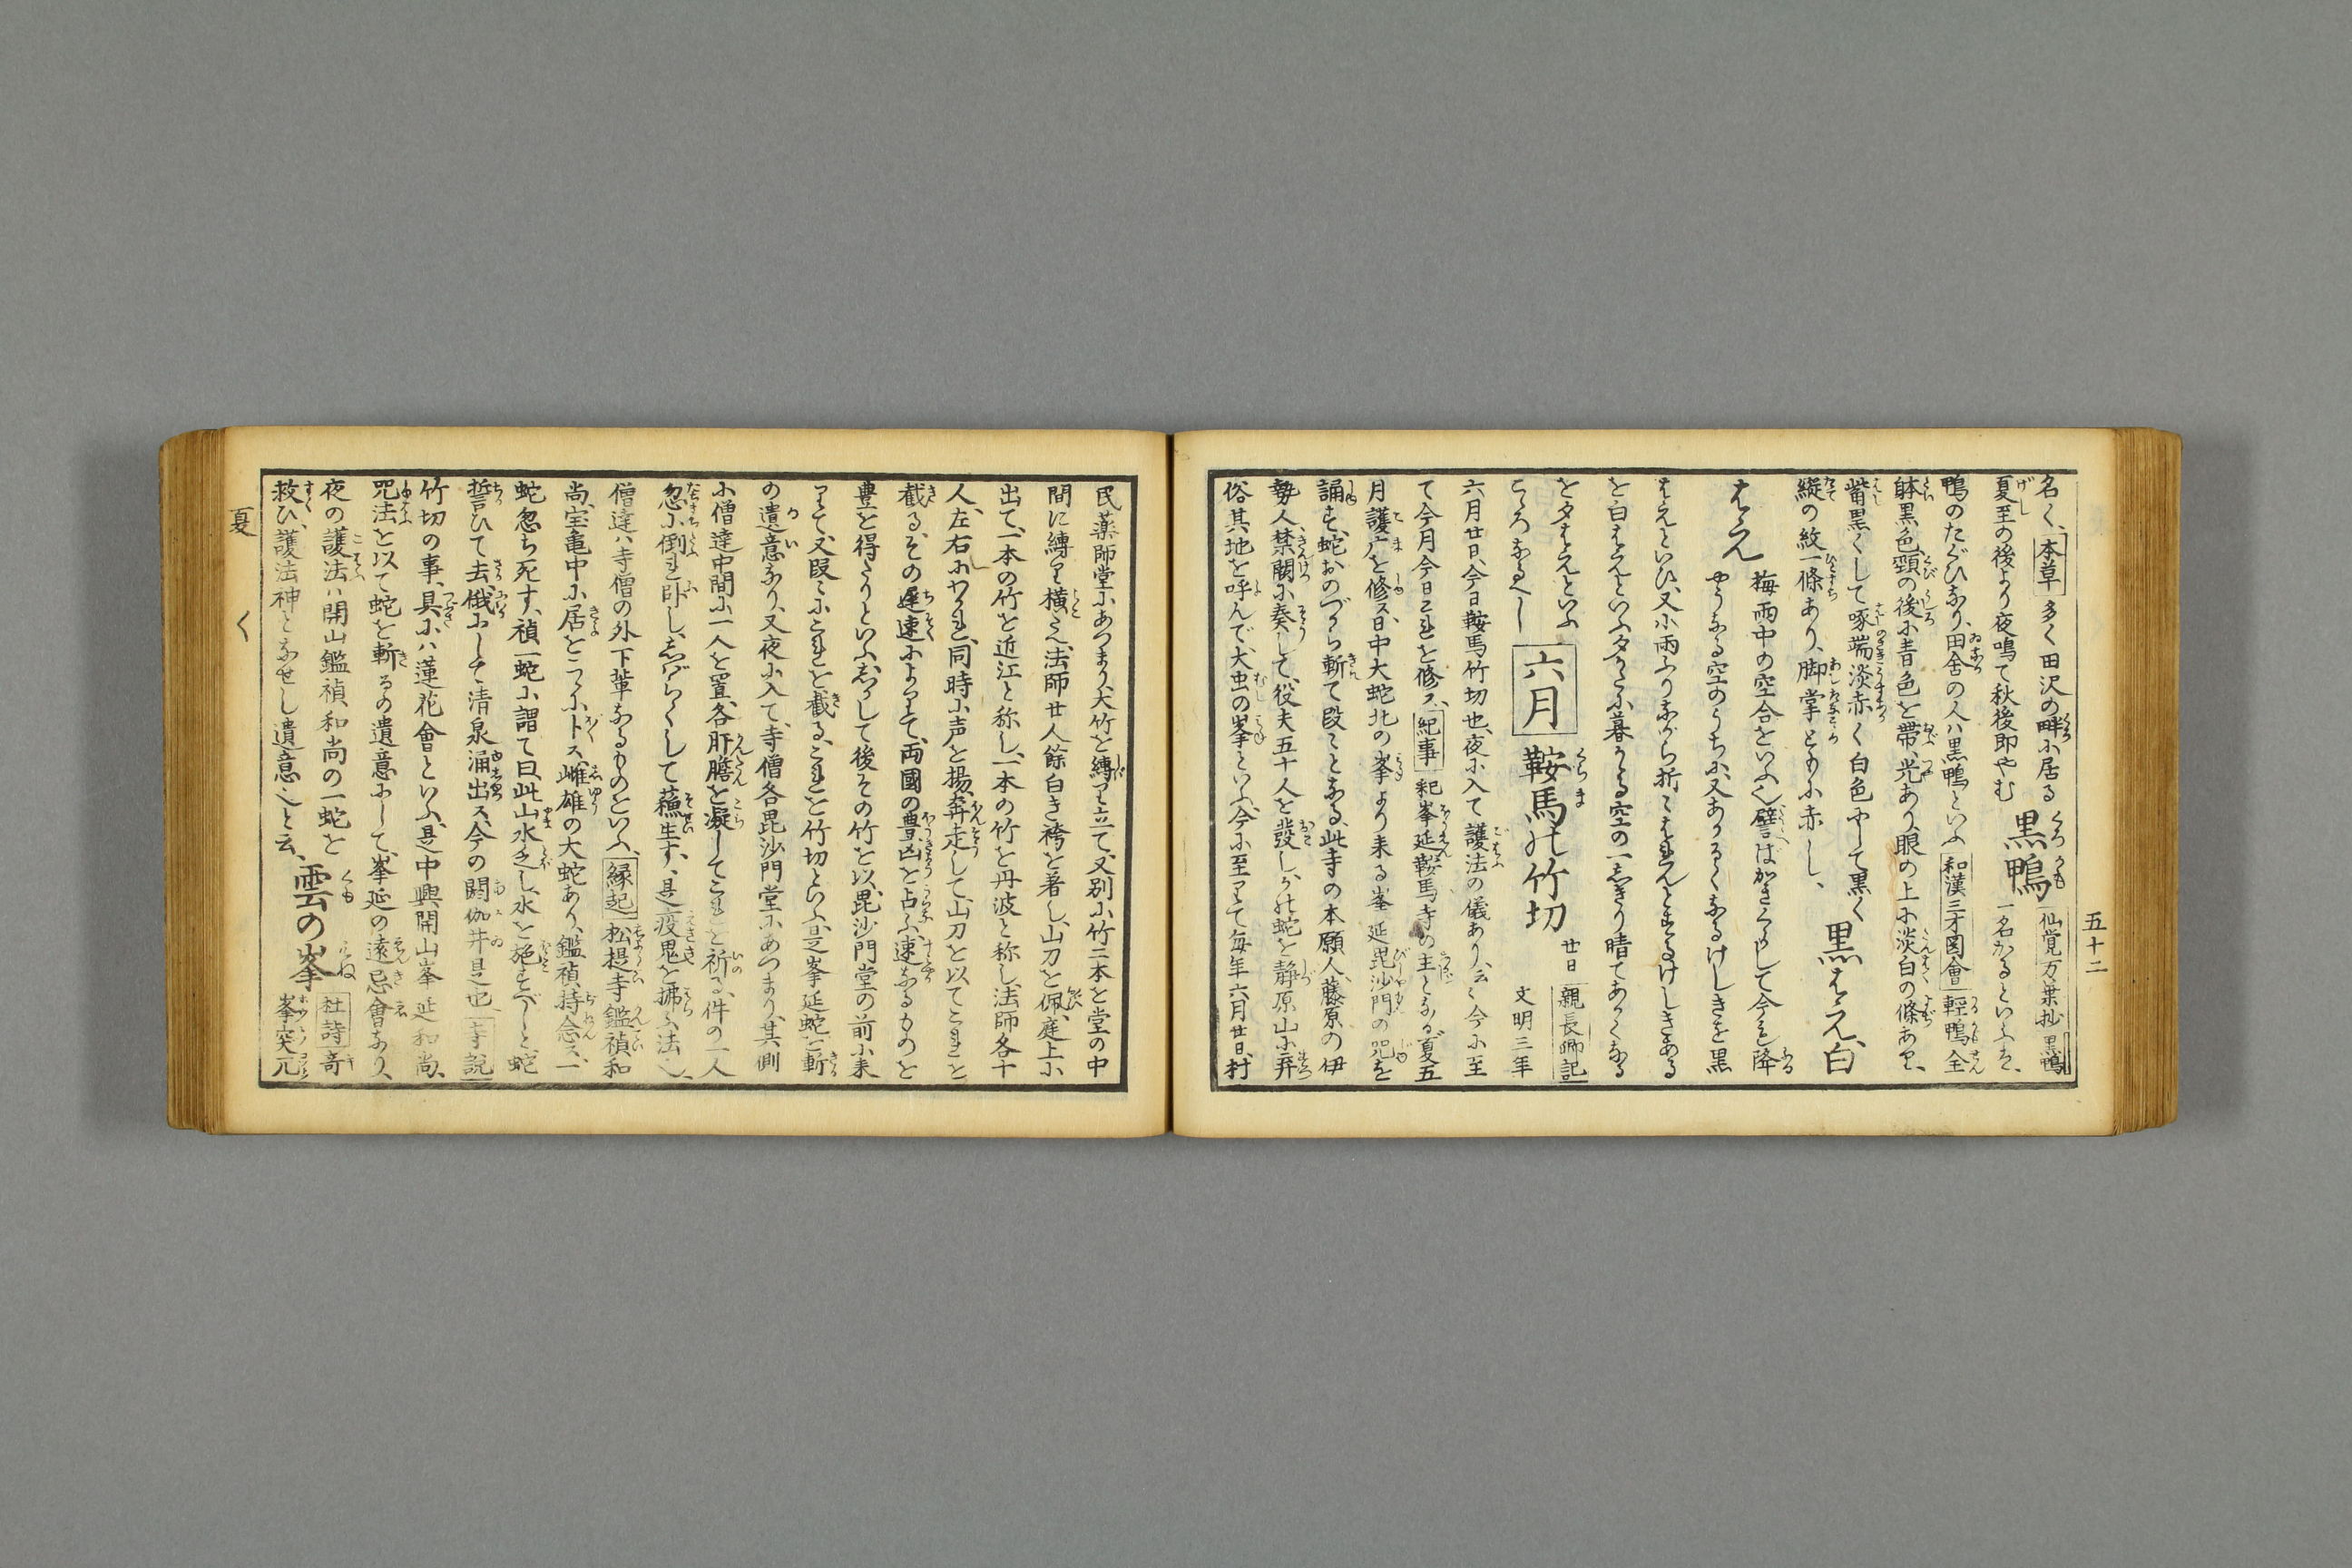 五十二
名く、本草 多く田沢の畔に居る 黒鴨 仙覚万葉抄 黒鴨
夏至の後より夜鳴て秋後即やむ 一名かるといふは、
鴨のたぐひなり、田舎の人ハ黒鴨といふ 和漢三才図會 軽鴨全
躰黒色頸の後に青色を帯、光あり、眼の上に淡白の條あり、
觜黒くして啄端淡赤く白色にして黒く 黒はえ、白
縦の紋一條あり、脚掌ともに赤し、
はえ 梅雨中の空合をいふ、譬ばかきくもりして今も降
やうなる空のうちに、又あかるくなるけしきを黒
はえといひ、又小雨ふりながら折々はれんとするけしきある
を白はえといふ、夕かたに暮かゝる空の一しきり晴てあかくなる
を夕はえといふ
ころなるべし 六月 鞍馬の竹切 廿日 親長卿記 文明三年
六月廿日、今日鞍馬竹切也、夜に入て護法の儀あり、云々今に至
て今月今日これを修ス、紀事 昶峯延鞍馬寺の主となる夏五
月護广を修ス、日中大蛇北の峯より来る峯延毘沙門の咒を
誦す、蛇おのづから斬て段々となる、此寺の本願人、藤原の伊
勢人、禁闕に奏して、役夫五十人を發し、かの蛇を静原山に弃
俗其地を呼んで大虫の峯といふ、今に至りて毎年六月廿日、村
民薬師堂にあつまり、大竹を縛り立て、又別に竹二本を堂の中
間に縛り横たへ、法師廿人餘白き袴を著し、山刀を佩、庭上に
出て、一本の竹を近江と称し、一本の竹を丹波と称し、法師各十
人、左右にわかれ、同時に声を揚、奔走して、山刀を以てこれを
截る、その遅速によりて、両國の豊凶を占ふ、速なるものを
豊を得たりといふ、しかして後その竹を以、毘沙門堂の前に来
りて、又段々にこれを截る、これを竹切といふ、是峯延蛇を斬
の遺意なり、又夜に入て、寺僧各毘沙門堂にあつまり、其側
に僧達中間に一人を置、各肝膽を凝してこれを祈る、件の一人
忽に倒れ卧し、しばらくして蘓生す、是疫鬼を拂ふ法也、
僧達ハ寺僧の外下輩なるものをいふ、縁起 招提寺鑑禎和
尚、宝亀中に居をこゝに卜ス、雌雄の大蛇あり、鑑禎持念ス、一
蛇忽ち死す、禎一蛇に謂て曰、此山水乏し、水を施すべしと、蛇
誓ひて去、俄にして清泉涌出ス、今の閼伽井是也 寺説
竹切の事、具にハ蓮花會といふ、是中興開山峯延和尚、
咒法を以て蛇を斬るの遺意にして、峯延の遠忌會なり、
夜の護法ハ開山鑑禎和尚の一蛇を 雲の峯 杜詩 竒
救ひ、護法神となせし遺意也と云、 峯突兀
夏
く